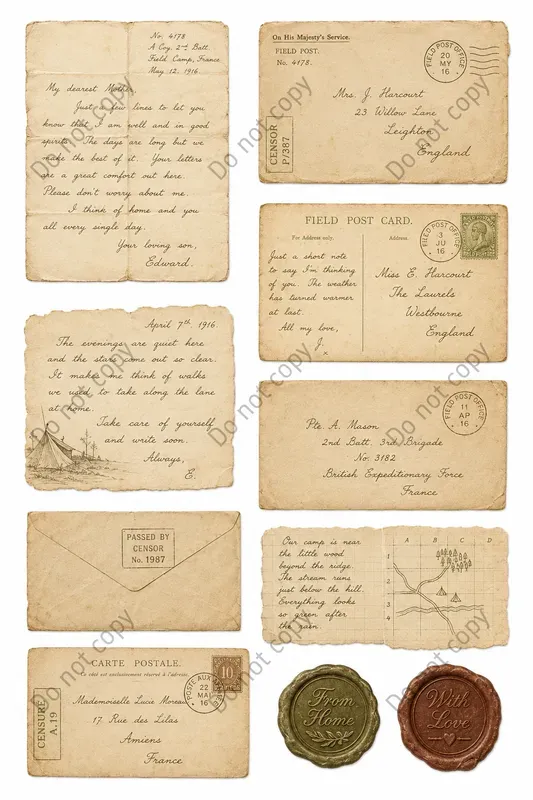 No. 4178
A Coy. 2nd Batt.
Field Camp, France
May 12. 1916
My dearest Mother,
Just a few lines to let you
know that I am well and in good
spirits. The days are long but we
make the best of it. Your letters
are a great comfort out here.
Please don't worry about me.
I think of home and you
all every single day.
Your loving son,
Edward.
On His Majesty's Service.
FIELD POST.
No. 4178.
FIELD POST OFFICE
20
MY
16
Mrs. J. Harcourt
23 Willow Lane
Leighton
England
CENSOR
P/387
FIELD POST CARD.
For Address only.
Address.
FIELD POST OFFICE
3
JU
16
Just a short note
to say I'm thinking
of you. The weather
has turned warmer
at last.
All my love,
J.
x
Miss E. Harcourt
The Laurels
Westbourne
England
April 7th. 1916.
The evenings are quiet here
and the stars come out so clear.
It makes me think of walks
we used to take along the lane
at home.
Take care of yourself
and write soon.
Always,
E.
FIELD POST OFFICE
11
AP
16
Pte. A. Mason
2nd Batt. 3rd Brigade
No. 3182
British Expeditionary Force
France
PASSED BY
CENSOR
No. 1987
Our camp is near
the little wood
beyond the ridge.
The stream runs
just below the hill.
Everything looks
so green after
the rain.
A B C D
1
2
3
4
CARTE POSTALE.
Ce côté est exclusivement réservé à l'adresse.
POSTE AUX ARMÉES
22
MAI
16
10
CENSURE
A.19
Mademoiselle Lucie Moreau
17. Rue des Lilas
Amiens
France
From
Home
With
Love
Do not copy
Do not copy
Do not copy
Do not copy
Do not copy
Do not copy
Do not copy
Do not copy
Do not copy
Do not copy